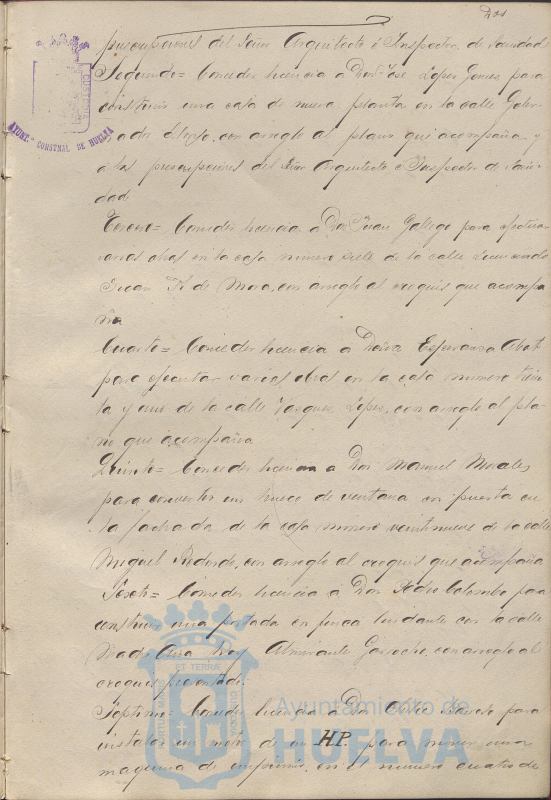 Dos
prescripciones del Señor Arquitecto é Inspector de Sanidad
Segundo= Conceder licencia á Don José López Gomez para
construir una casa de nueva planta en la calle Gober-
nador Alonso, con arreglo al plano que acompaña y
á las prescripciones del Señor Arquitecto é Inspector de Sani-
dad
Tercero= Conceder licencia á Don Juan Gallego para efectuar
varias obras en la casa número siete de la calle
Juan de Mora, con arreglo al croquis que acompa
ña
Cuarto= Conceder licencia á Doña Esperanza Abat
para ejecutar varias obras en la casa número trein
ta y uno de la calle Vazquez Lopez, con arreglo al pla-
no que acompaña
Quinto= Conceder licencia á Don Manuel Morales
para convertir un hueco de ventana en puerta en
la fachada de la casa número veintinueve de la calle
Miguel Redondo, con arreglo al croquis que acompaña
Sexto= Conceder licencia á Don Pedro Colombo para
construir una portada en finca lindante con la calle
hoy Almirante Garrocho, con arreglo al
croquis presentado
Septimo= Conceder licencia á Don para
instalar un motor de un HP. para mover una
maquina de imprimir, en el número cuatro de
AYUNT.º CONSTNAL DE HUELVA
Ayuntamiento de
HUELVA